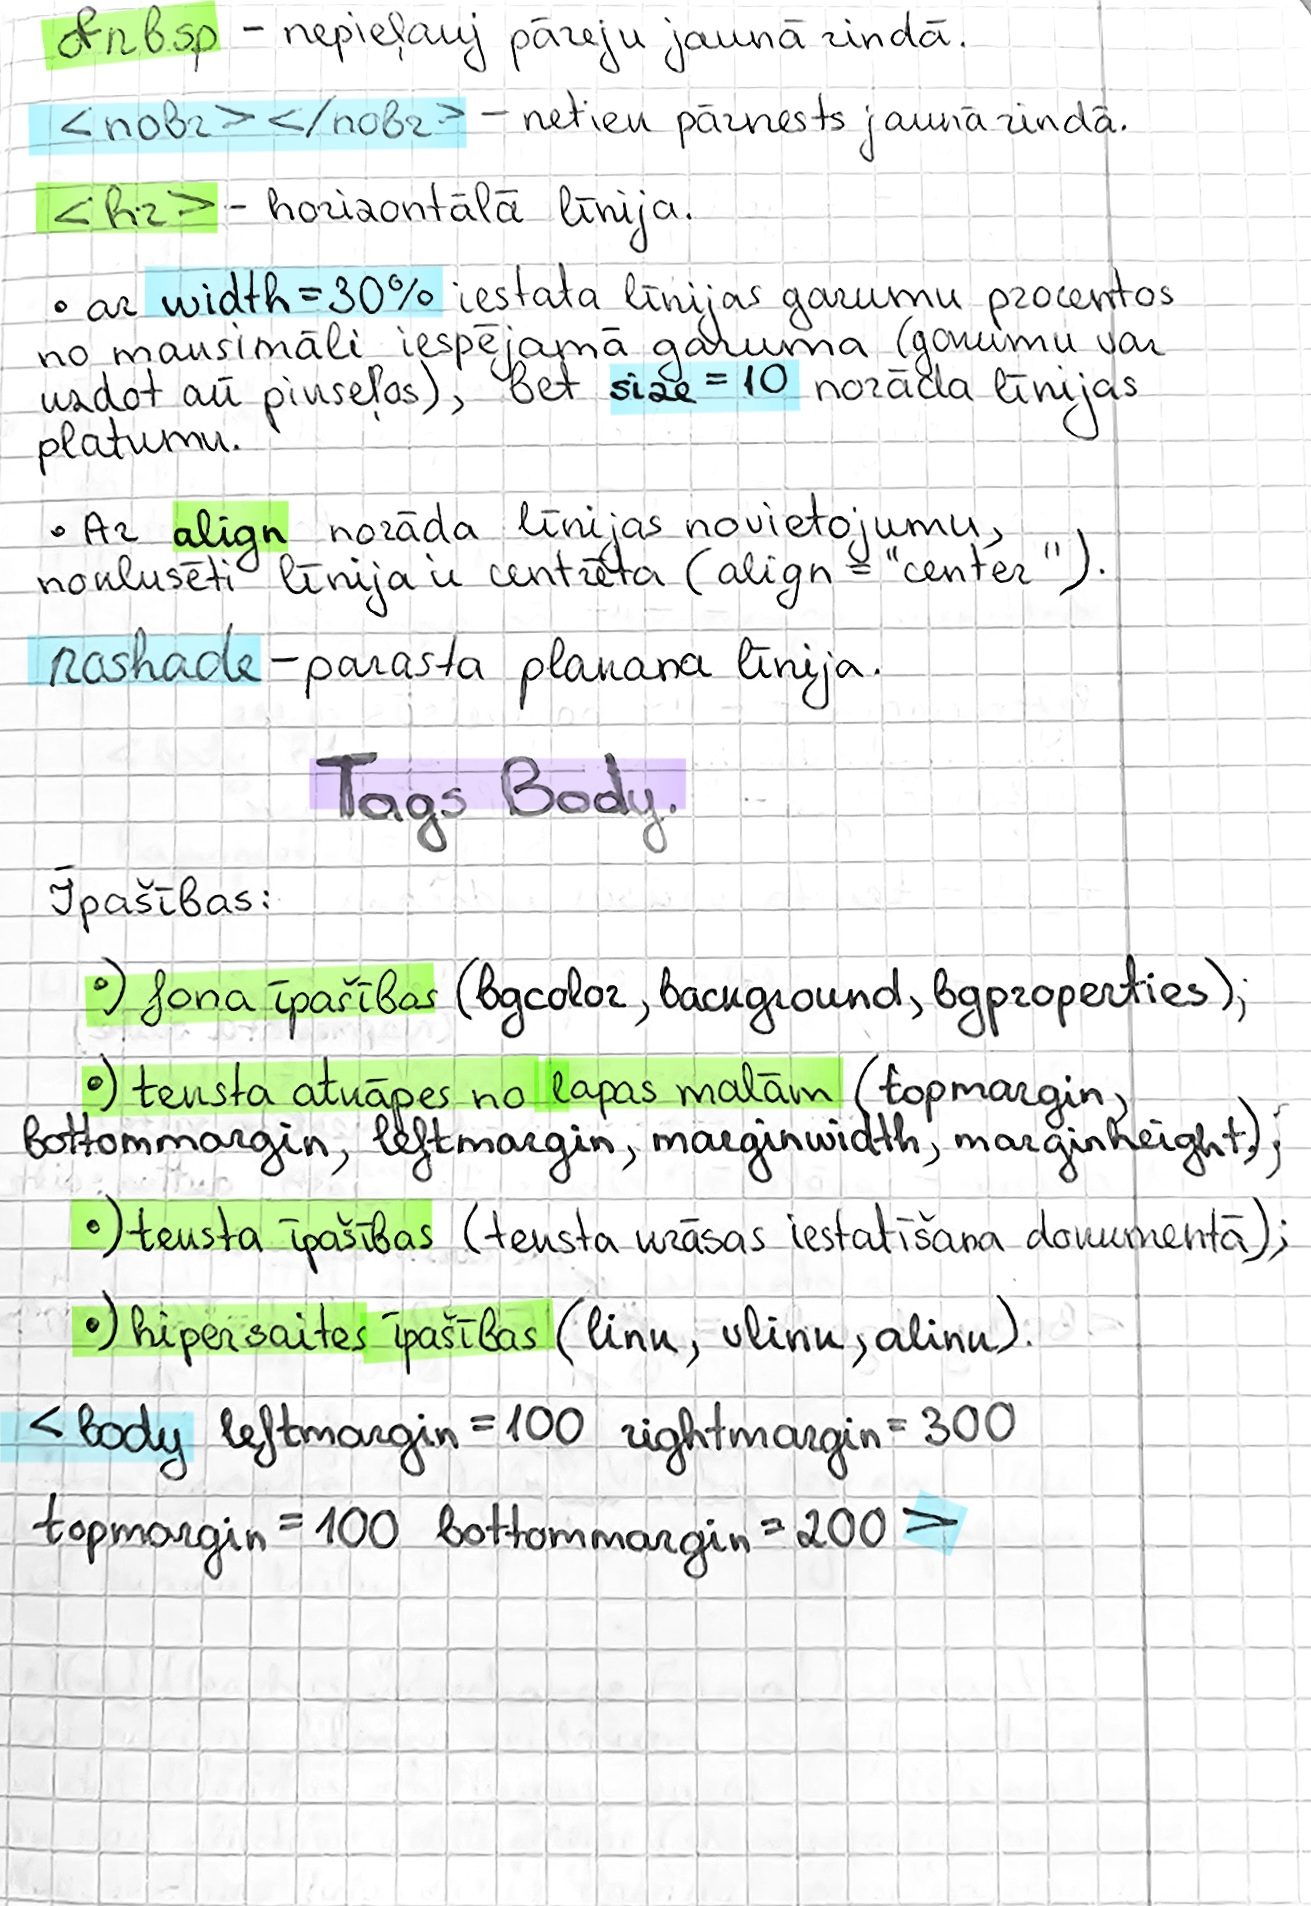 &nbsp - nepieļauj pāreju jaunā rindā.
<nobr></nobr> - netiek pārnests jaunā rindā.
<hr> - horizontālā līnija.
• ar width=30% iestata līnijas garumu procentos
no maksimāli iespējamā garuma (garumu var
uzdot arī pikseļos), bet size=10 norāda līnijas
platumu.
• Ar align norāda līnijas novietojumu,
noklusēti līnija ir centrēta (align="center").
noshade - parasta plakana līnija.
Tags Body.
Īpašības:
•) fona īpašības (bgcolor, background, bgproperties);
•) teksta atkāpes no lapas malām (topmargin,
bottommargin, leftmargin, marginwidth, marginheight);
•) teksta īpašības (teksta krāsas iestatīšana dokumentā);
•) hipersaites īpašības (link, vlink, alink).
<body leftmargin=100 rightmargin=300
topmargin=100 bottommargin=200>